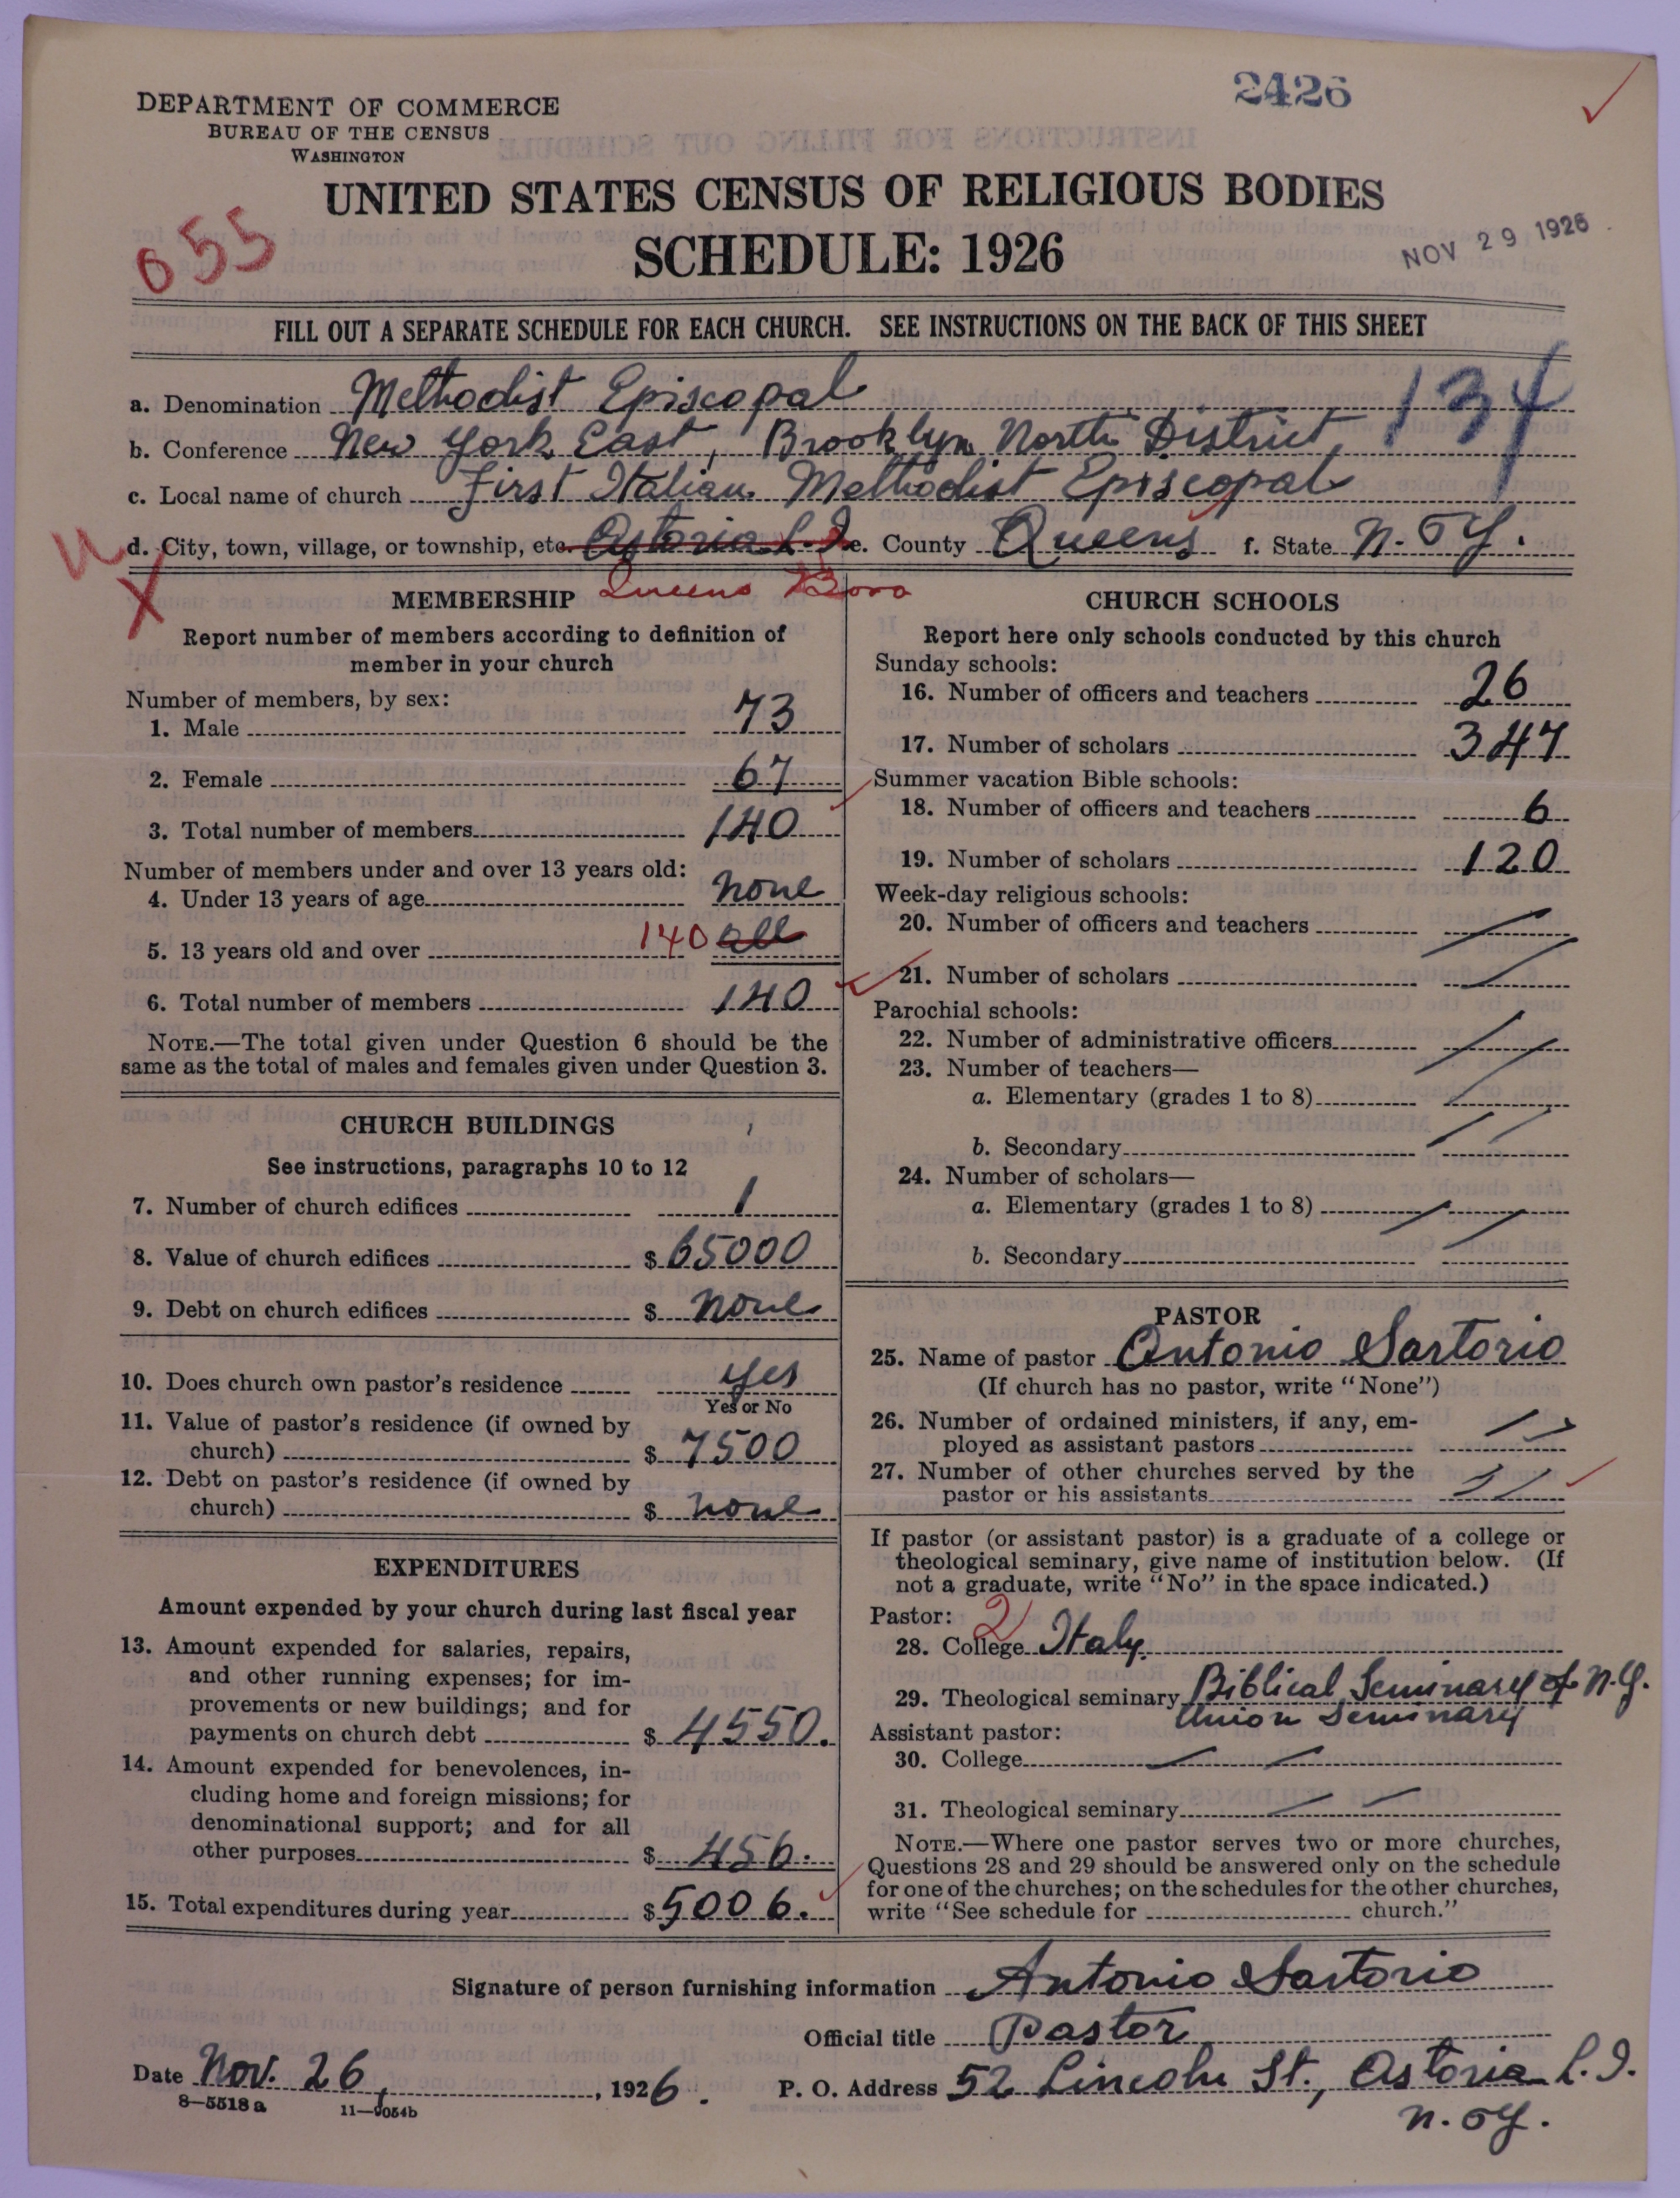 2426
DEPARTMENT OF COMMERCE
BUREAU OF THE CENSUS
WASHINGTON
UNITED STATES CENSUS OF RELIGIOUS BODIES
SCHEDULE: 1926
NOV 29 1926
655
FILL OUT A SEPARATE SCHEDULE FOR EACH CHURCH. SEE INSTRUCTIONS ON THE BACK OF THIS SHEET
134
a. Denomination Methodist Episcopal
b. Conference New York East, Brooklyn North District
c. Local name of church First Italian Methodist Episcopal
d. City, town, village, or township, etc. Astoria L. I. e. County Queens f. State N. Y.
Queens Boro
MEMBERSHIP
Report number of members according to definition of
member in your church
Number of members, by sex:
1. Male 73
2. Female 67
3. Total number of members 140
Number of members under and over 13 years old:
4. Under 13 years of age none
5. 13 years old and over 140 all
6. Total number of members 140
NOTE.—The total given under Question 6 should be the
same as the total of males and females given under Question 3.
CHURCH BUILDINGS
See instructions, paragraphs 10 to 12
7. Number of church edifices 1
8. Value of church edifices $ 65000
9. Debt on church edifices $ none
10. Does church own pastor's residence yes
Yes or No
11. Value of pastor's residence (if owned by
church) $ 7500
12. Debt on pastor's residence (if owned by
church) $ none
EXPENDITURES
Amount expended by your church during last fiscal year
13. Amount expended for salaries, repairs,
and other running expenses; for im-
provements or new buildings; and for
payments on church debt $ 4550.
14. Amount expended for benevolences, in-
cluding home and foreign missions; for
denominational support; and for all
other purposes $ 456.
15. Total expenditures during year $ 5006.
CHURCH SCHOOLS
Report here only schools conducted by this church
Sunday schools:
16. Number of officers and teachers 26
17. Number of scholars 347
Summer vacation Bible schools:
18. Number of officers and teachers 6
19. Number of scholars 120
Week-day religious schools:
20. Number of officers and teachers
21. Number of scholars
Parochial schools:
22. Number of administrative officers
23. Number of teachers—
a. Elementary (grades 1 to 8)
b. Secondary
24. Number of scholars—
a. Elementary (grades 1 to 8)
b. Secondary
PASTOR
25. Name of pastor Antonio Sartorio
(If church has no pastor, write "None")
26. Number of ordained ministers, if any, em-
ployed as assistant pastors
27. Number of other churches served by the
pastor or his assistants
If pastor (or assistant pastor) is a graduate of a college or
theological seminary, give name of institution below. (If
not a graduate, write "No" in the space indicated.)
Pastor: 2
28. College Italy
29. Theological seminary Biblical Seminary of N.Y.
Union Seminary
Assistant pastor:
30. College
31. Theological seminary
NOTE.—Where one pastor serves two or more churches,
Questions 28 and 29 should be answered only on the schedule
for one of the churches; on the schedules for the other churches,
write "See schedule for church."
Signature of person furnishing information Antonio Sartorio
Official title Pastor
Date Nov. 26, 1926. P. O. Address 52 Lincoln St., Astoria L. I.
N. Y.
8—5518a 11—9054b